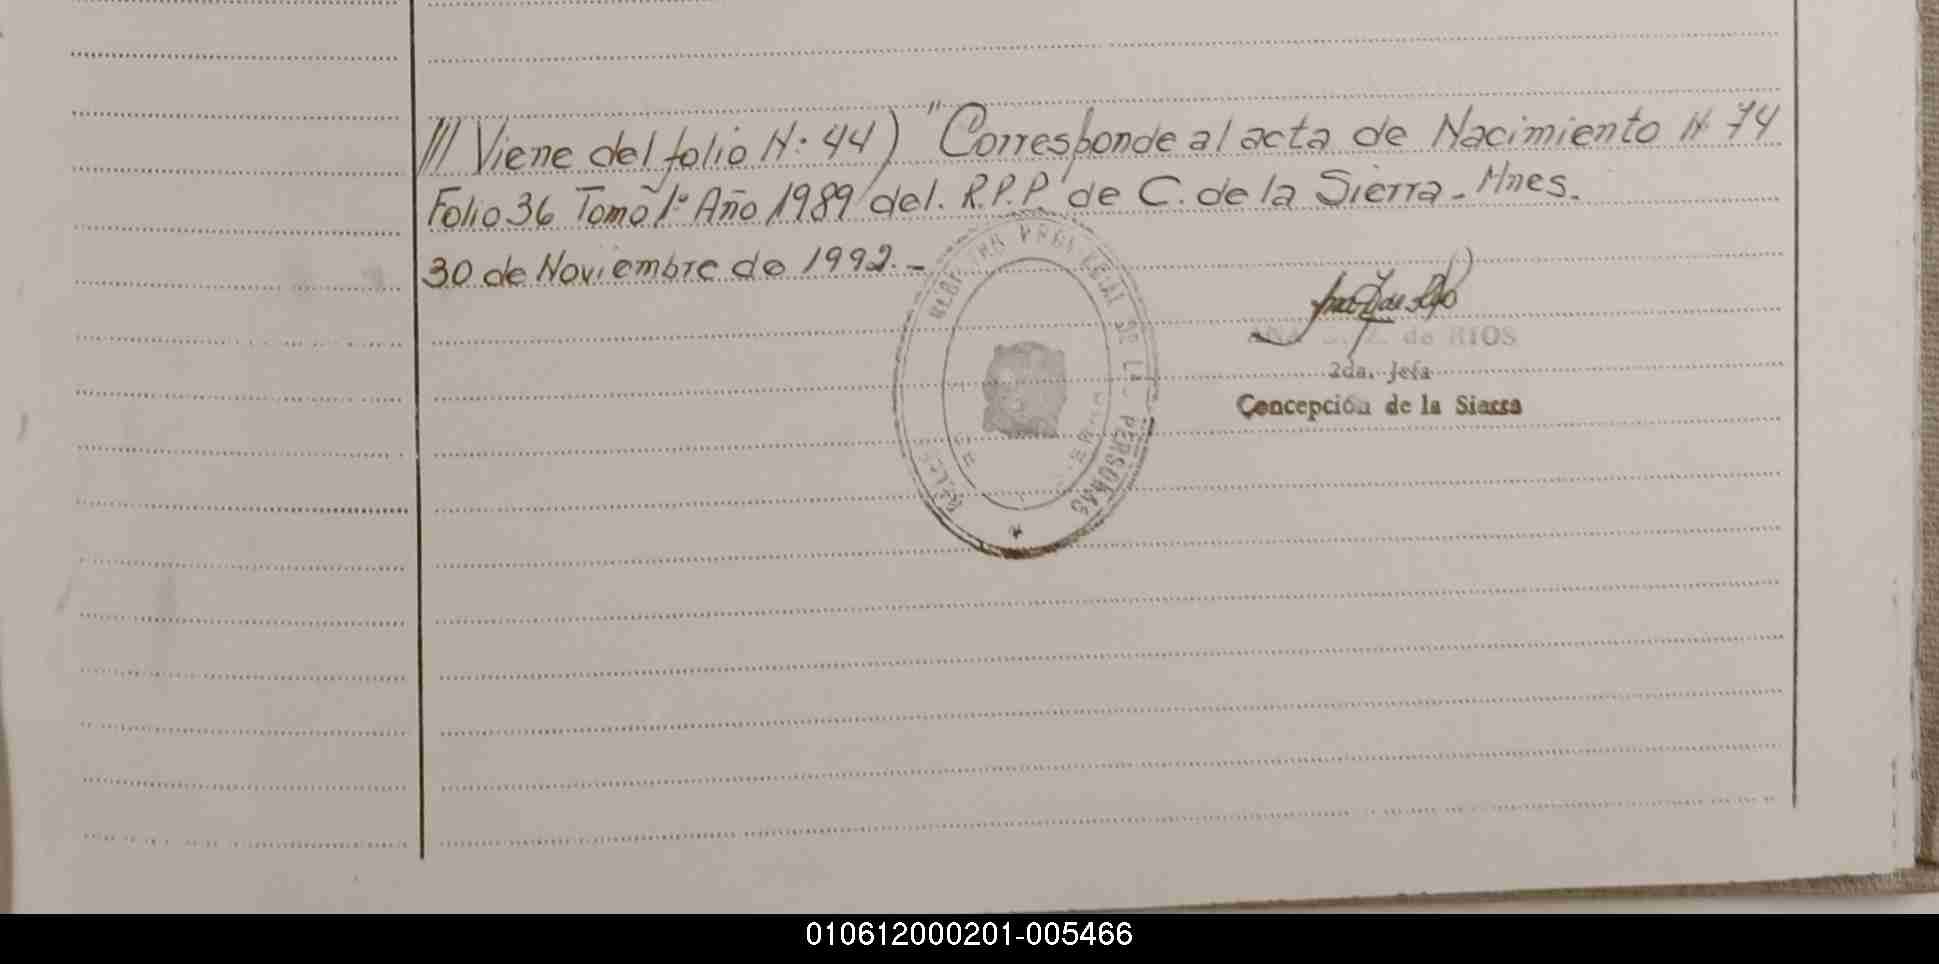 /// Viene del folio N. 44) "Corresponde al acta de Nacimiento N. 74
Folio 36 Tomo 1° Año 1989 del. R.P.P. de C. de la Sierra - Mnes.
30 de Noviembre de 1992.-
de RIOS
2da. Jefa
Concepción de la Sierra
DE LAS PERSONAS
010612000201-005466